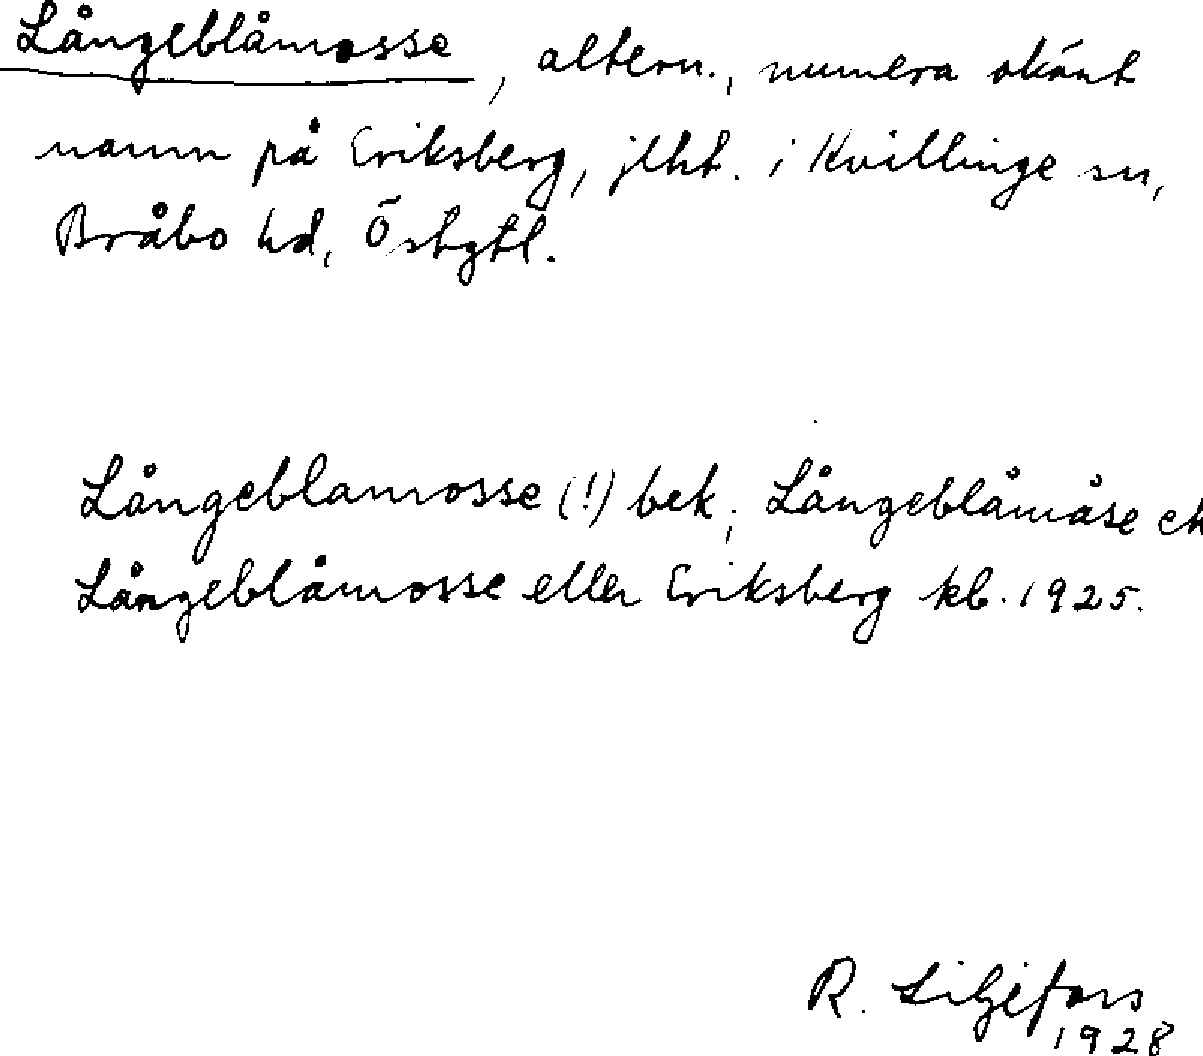 Långeblåmosse, altern., numera okänt
namn på Eriksberg, jlht. i Kvillinge sn,
Bråbo hd, Östgtl.
Långeblamosse (!) bek; Långeblåmåse ek
Långeblåmosse eller Eriksberg kb. 1925.
R. Liljefors
1928